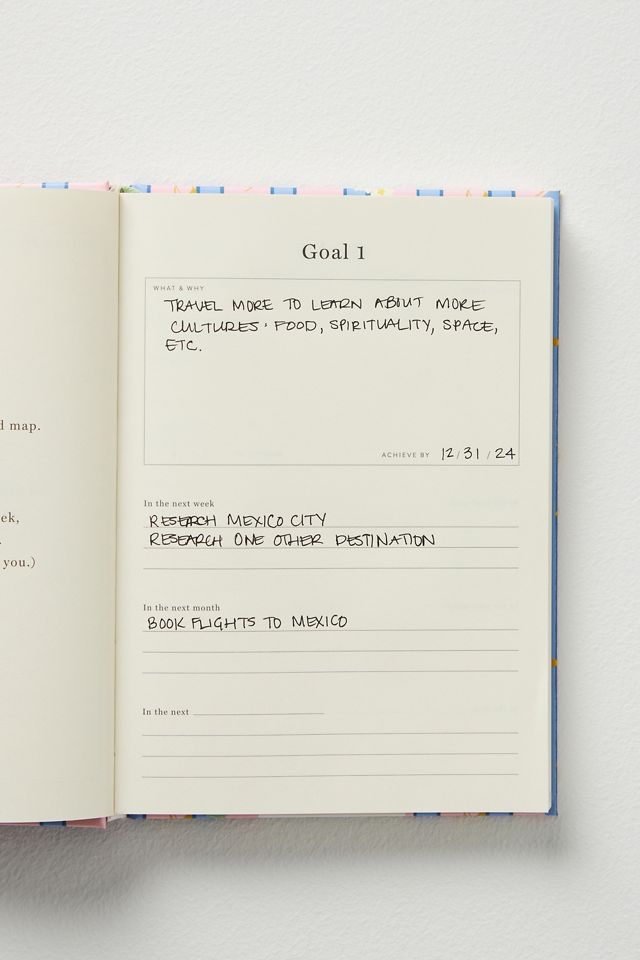 d map.
ek,
.
you.)
Goal 1
WHAT & WHY
TRAVEL MORE TO LEARN ABOUT MORE
CULTURES · FOOD, SPIRITUALITY, SPACE,
ETC.
ACHIEVE BY 12/31/24
In the next week
RESEARCH MEXICO CITY
RESEARCH ONE OTHER DESTINATION
In the next month
BOOK FLIGHTS TO MEXICO
In the next